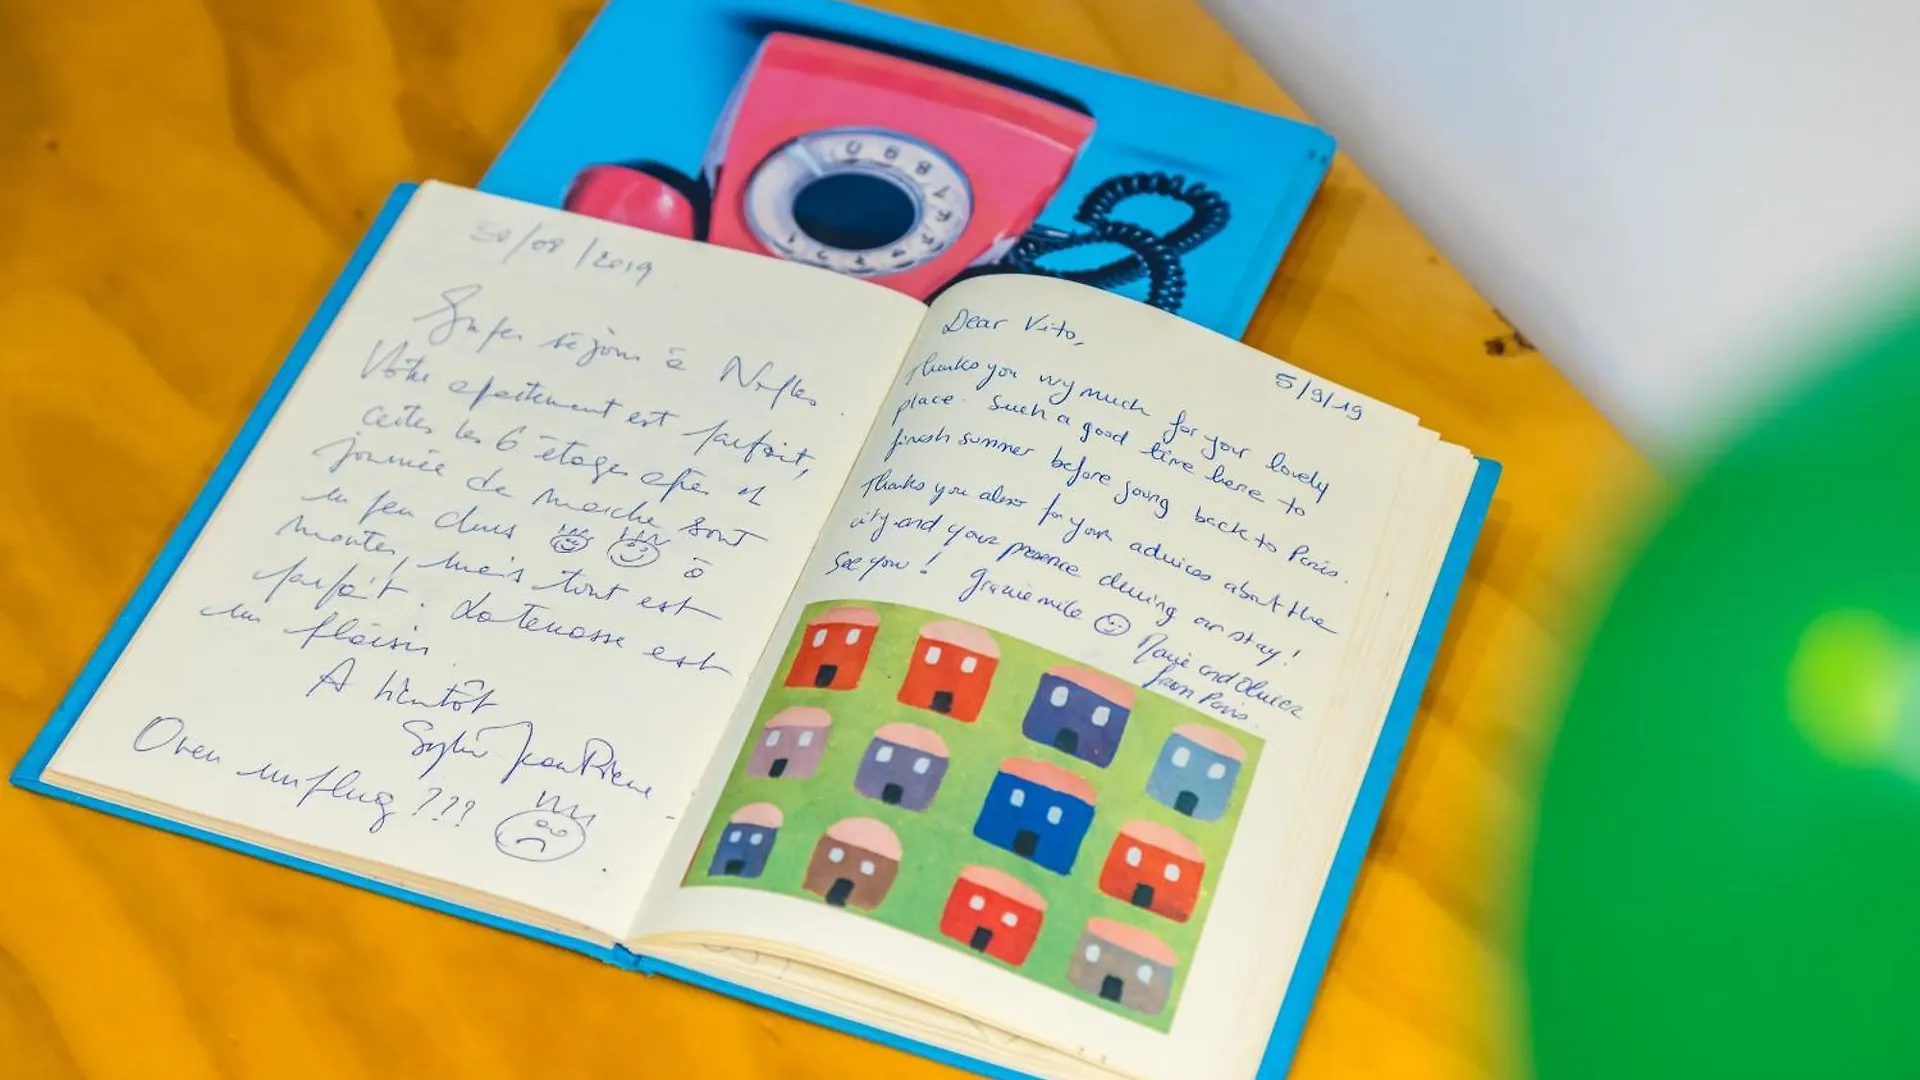 30/08/2019
Super séjour à Naples.
Votre apartement est parfait,
certes les 6 étages après 1
journée de marche sont
un peu durs à
monter, mais tout est
parfait. La terrasse est
un plaisir.
A bientôt
Sylvie Jean Pierre
Oven unplug ???
Dear Vito,
5/9/19
Thanks you very much for your lovely
place. Such a good time here to
finish summer before going back to Paris.
Thanks you also for your advices about the
city and your presence during our stay!
See you! Grazie mile
and Olivier
from Paris.
0 9 8 7 6 5 4 3 2 1